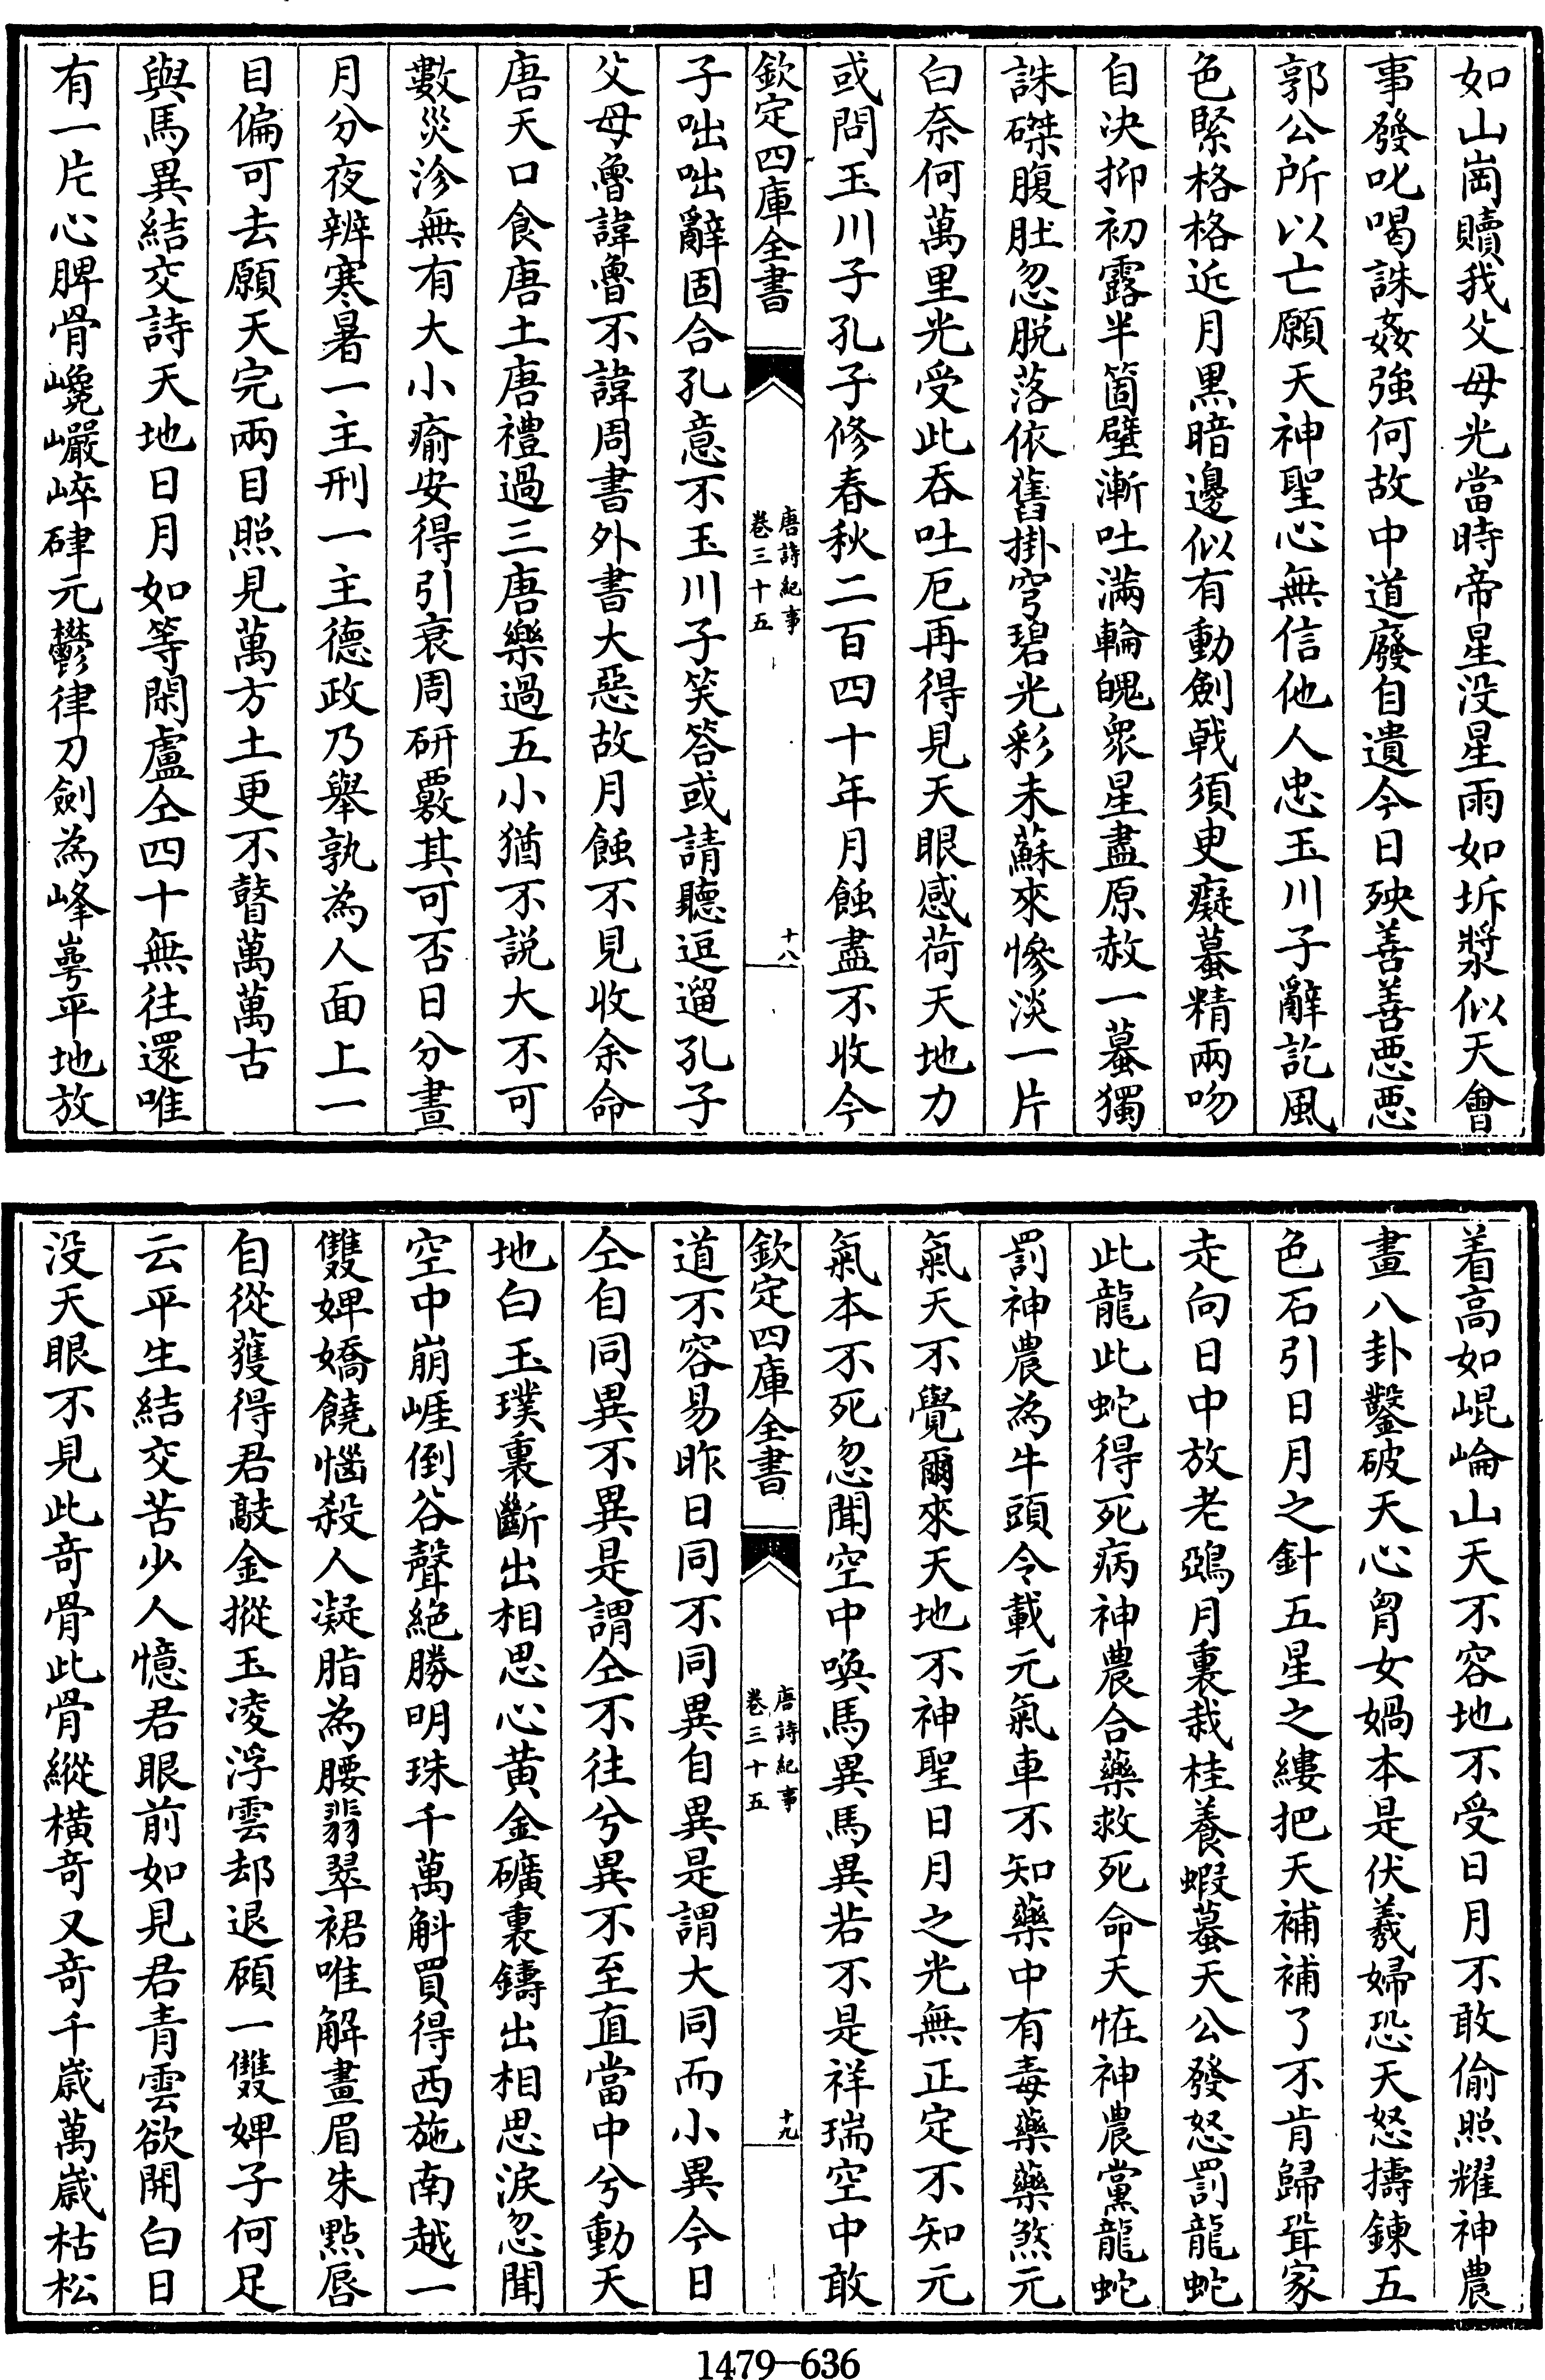 如山崗贖我父母光當時帝星没星雨如坼漿似天㑹
事發叱喝誅姦強何故中道廢自遺今日殃善善惡惡
郭公所以亡願天神聖心無信他人忠玉川子辭訖風
色緊格格近月黒暗邊似有動劍㦸須臾癡蟇精兩吻
自决抑初露半箇璧漸吐滿輪魄衆星盡原赦一蟇獨
誅磔腹肚忽脱落依舊掛穹碧光彩未蘇來慘淡一片
白奈何萬里光受此吞吐厄再得見天眼感荷天地力
或問玉川子孔子修春秋二百四十年月蝕盡不收今
欽定四庫全書
唐詩紀事
卷三十五
十八
子咄咄辭固合孔意不玉川子笑答或請聽逗遛孔子
父母魯諱魯不諱周書外書大惡故月蝕不見收余命
唐天口食唐土唐禮過三唐樂過五小猶不説大不可
數災沴無有大小瘉安得引衰周研覈其可否日分晝
月分夜辨寒暑一主刑一主德政乃舉孰為人面上一
目偏可去願天完兩目照見萬方土更不瞽萬萬古
與馬異結交詩天地日月如等閑盧仝四十無往還唯
有一片心脾骨巉巖崒硉元鬱律刀劍為峰崿平地放
着高如崐崘山天不容地不受日月不敢偷照耀神農
畫八卦鑿破天心胷女媧本是伏羲婦恐天怒擣鍊五
色石引日月之針五星之縷把天補補了不肯歸壻家
走向日中放老鵶月裏栽桂養蝦蟇天公發怒罰龍蛇
此龍此蛇得死病神農合藥救死命天恠神農黨龍蛇
罰神農為牛頭令載元氣車不知藥中有毒藥藥煞元
氣天不覺爾來天地不神聖日月之光無正定不知元
氣本不死忽聞空中喚馬異馬異若不是祥瑞空中敢
欽定四庫全書
唐詩紀事
卷三十五
十九
道不容易昨日同不同異自異是謂大同而小異今日
仝自同異不異是謂仝不往兮異不至直當中兮動天
地白玉璞裏斷出相思心黄金礦裏鑄出相思淚忽聞
空中崩崕倒谷聲絶勝明珠千萬斛買得西施南越一
雙婢嬌饒惱殺人凝脂為腰翡翠裙唯解畫眉朱點唇
自從獲得君敲金摐玉凌浮雲却退頋一雙婢子何足
云平生結交苦少人憶君眼前如見君青雲欲開白日
没天眼不見此竒骨此骨縱横竒又竒千嵗萬嵗枯松
1479—636